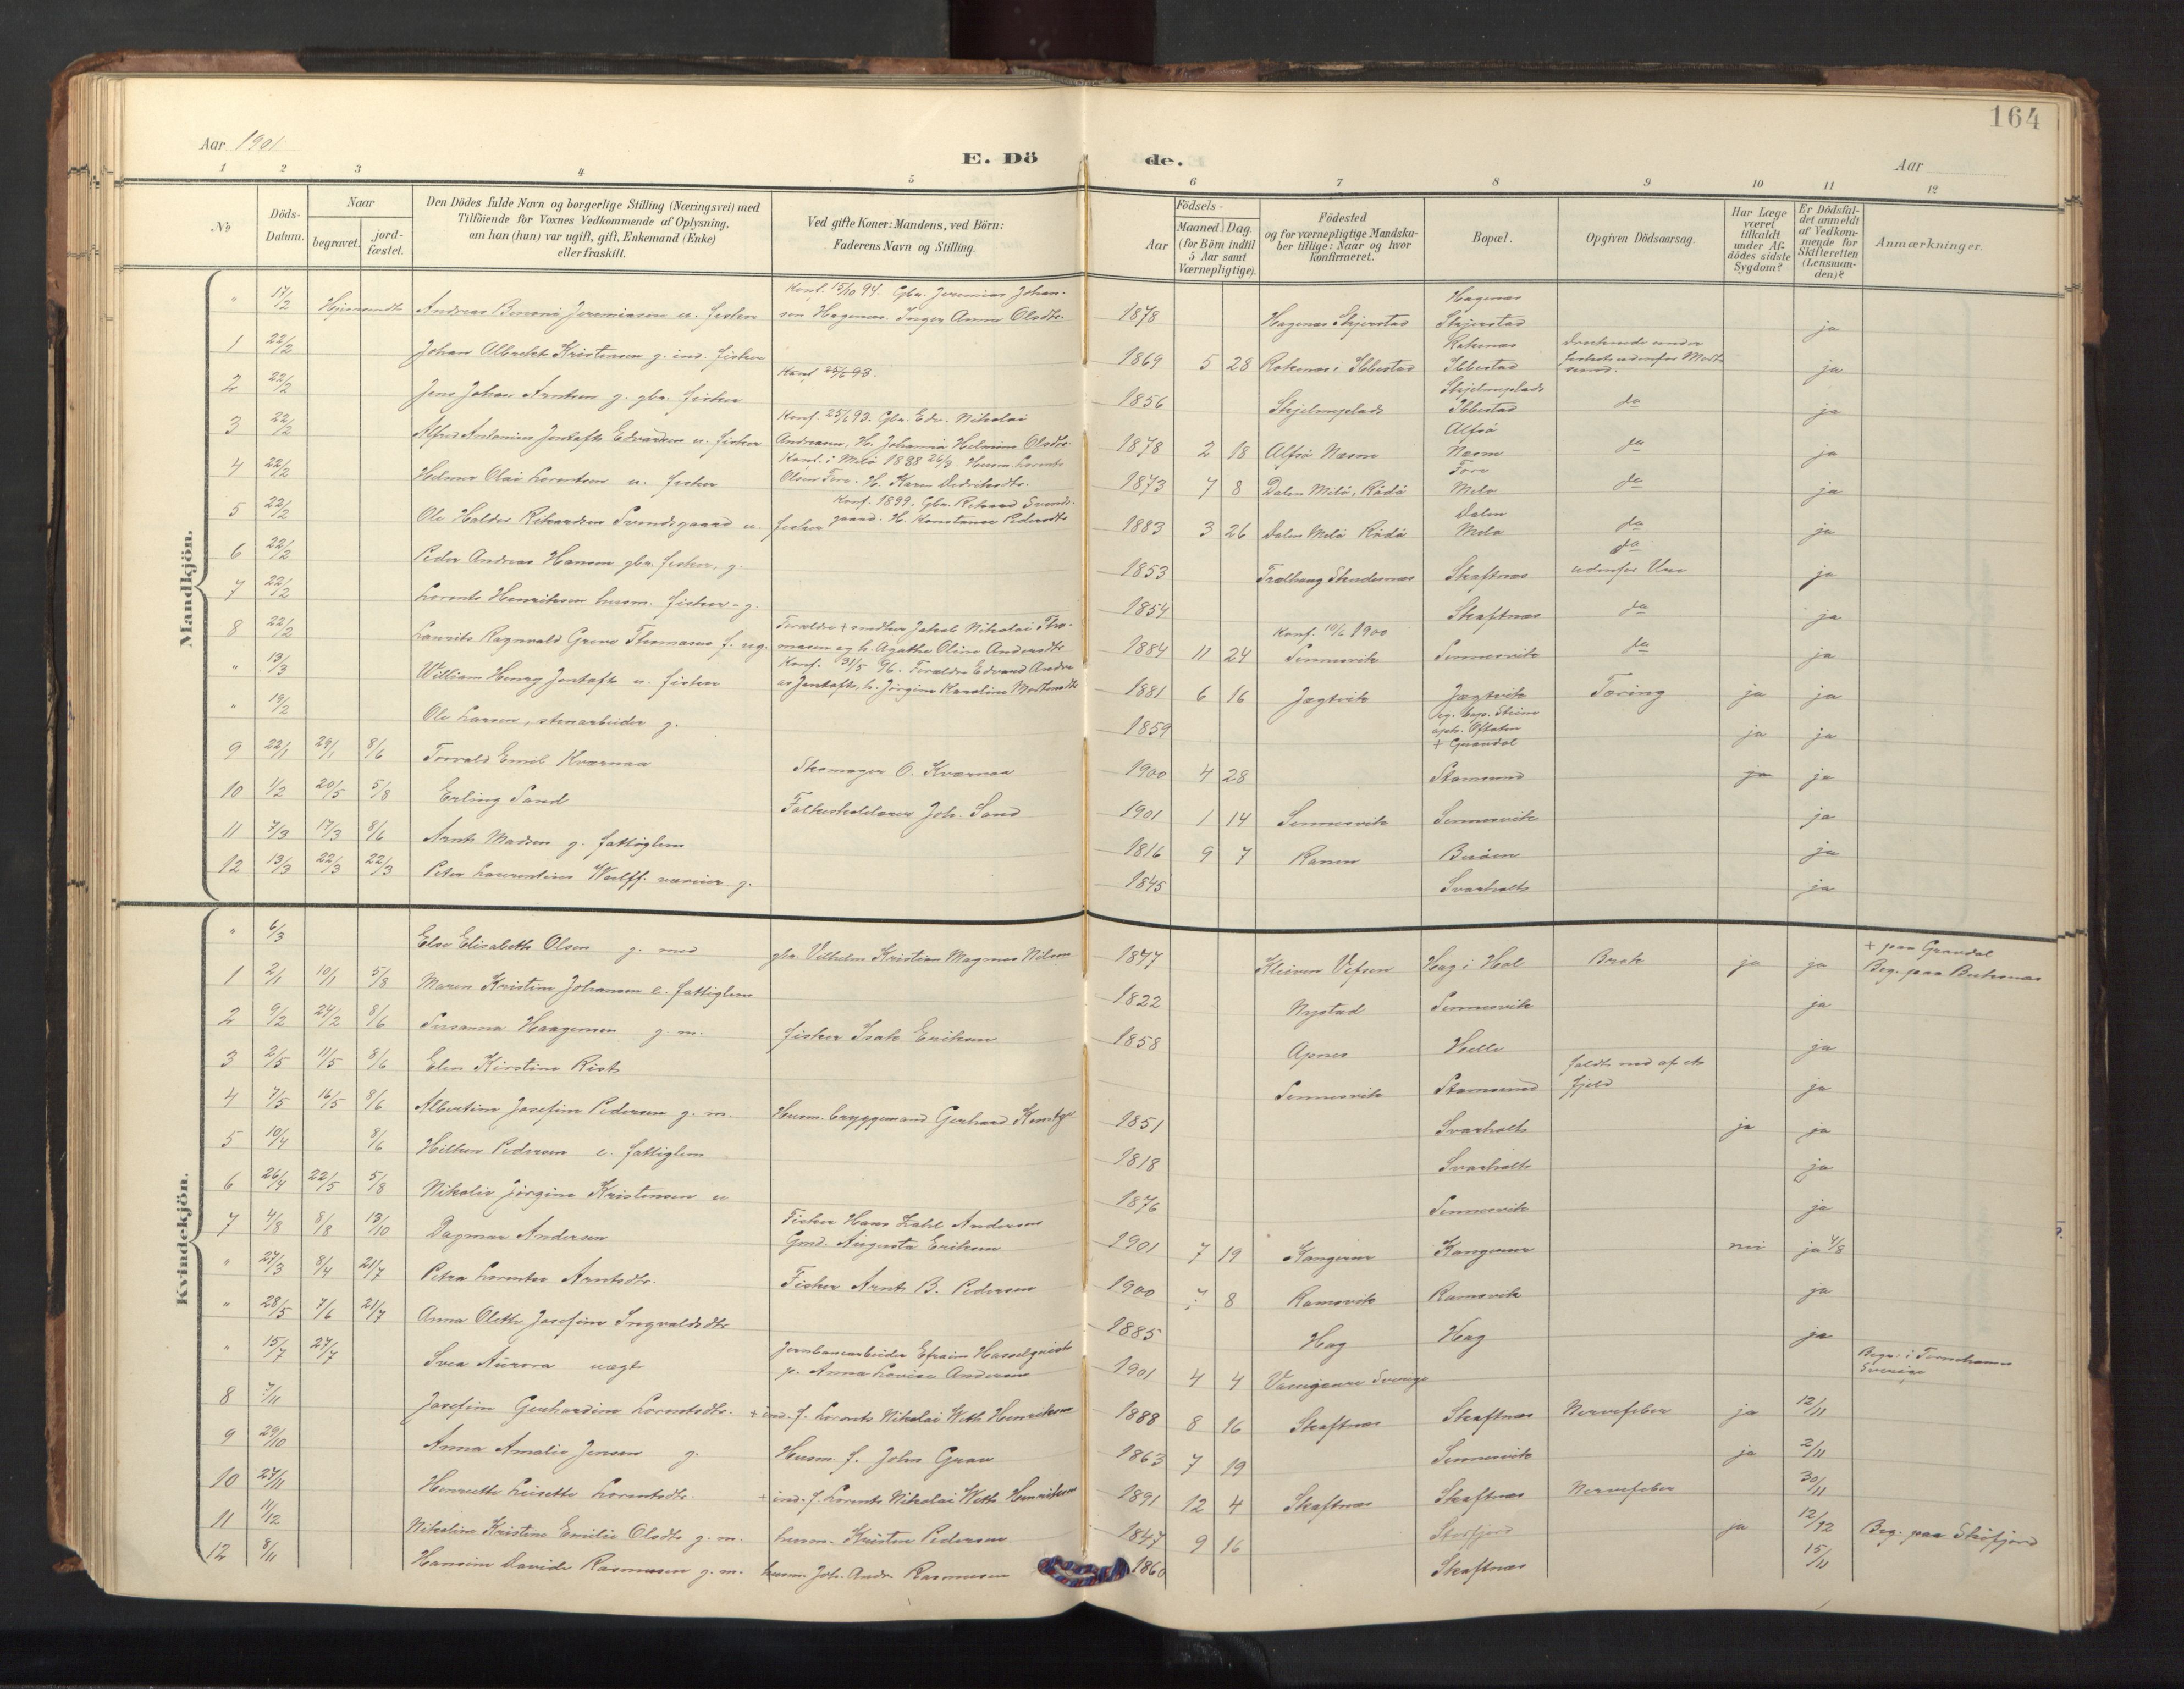 164
Aar 1901
E. Dö de.
Aar
1 2 3 4 5 6 7 8 9 10 11 12
No
Döds-Datum.
Naar
begravet.
jord-fæstet.
Den Dödes fulde Navn og borgerlige Stilling (Næringsvei) med
Tilföiende for Voxnes Vedkommende af Oplysning,
om han (hun) var ugift, gift, Enkemand (Enke)
eller fraskilt.
Ved gifte Koner: Mandens, ved Börn:
Faderens Navn og Stilling.
Födsels-
Aar
Maaned. Dag.
(for Börn indtil
5 Aar samt
Værnepligtige).
Födested
og for værnepligtige Mandska-
ber tillige: Naar og hvor
konfirmeret.
Bopæl.
Opgiven Dödsaarsag.
Har Læge
været
tilkaldt
under Af-
dödes sidste
Sygdom?
Er Dödsfal-
det anmeldt
af Vedkom-
mende for
Skifteretten
(Lensman-
den)?
Anmærkninger.
Mandkjön.
Konf. 15/10 94. Gbr. Jeremias Johan-
Hagenæs
" 17/2 Andreas Benoni Jeremiasen u. fisker sen Hagenæs. Inger Anna Olsdtr. 1878 Hagenæs Skjerstad Skjerstad ja
1 22/2 Johan Albrekt Kristensen g. ind. fisker 1869 5 28 Rotenæs i Ibbestad Rotenæs Ibbestad Druknede under fiskeri udenfor ja
Konf. 25/6 93.
2 22/2 Jens Johan Arntsen g. gbr. fisker 1856 Skjelmplads Skjelmplads Ibbestad do ja
Konf. 25/6 93. Gbr. Edv. Nikolai
3 22/2 Alfred Antonius Jentoft Edvardsen u. fisker Andreasen. H. Johanna Helmine Olsdtr. 1878 2 18 Alfsö Næsen Alfsö Næsen do ja
Konf. i Melö 1888 26/8. Husm. Lorents
4 22/2 Helmer Olai Lorentsen u. fisker Olsen Fore. H. Karen Dedrikedtr. 1873 7 8 Dalen Melö, Rödö Fore Melö do ja
Konf. 1899. Gbr. Rikard Svends-
5 22/2 Ole Haldor Rikardsen Svendsgaard u. fisker gaard. H. Konstance Pedersdtr 1883 3 26 Dalen Melö Rödö Dalen Melö do ja
6 22/2 Peder Andreas Hansen gbr. fisker, g. 1853 Skaftnæs do udenfor Ure ja
7 22/2 Lorents Henriksen husm. fisker - g. 1854 Skaftnæs do ja
Forældre + snedker Jakob Nikolai Tho-
8 22/2 Laurits Ragnvald Greve Thomasen f. ug. masen og h. Agathe Oline Andersdtr 1884 11 24 Konf. 10/6 1900 Sennesvik Sennesvik do ja
Konf. 31/5 96. Forældre Edvard Andre
" 13/3 William Henry Jentoft u. fisker as Jentoft, h. Jörgine Karoline Mortensdtr 1881 6 16 Jægtvik Jægtvik Tæring ja ja
" 19/2 Ole Larsen, stenarbeider g. 1859 + Gravdal ja ja
9 22/1 29/1 8/6 Torvald Emil Kværnaa Skomager O. Kværnaa 1900 4 28 Stamsund ja ja
10 1/2 20/5 5/8 Erling Sand Folkeskolelærer Joh. Sand 1901 1 14 Sennesvik Sennesvik ja
11 7/3 17/3 8/6 Arnt Madsen g. fattiglem 1816 9 7 Ranen Beröen ja
12 13/3 22/3 22/3 Peter Laurentius Wulff. væveier g. 1845 Svarholt ja
Kvindekjön.
" 6/3 Else Elisabeth Olsen g. med gbr. Vilhelm Kristian Magnus Nilsen 1847 Kleiven Vefsen Hag i Hol Brok ja ja + paa Gravdal
Beg. paa Buksnæs
1 2/1 10/1 5/8 Maren Kristine Johansen e. fattiglem 1822 Nystad Sennesvik ja
2 9/2 24/2 8/6 Susanna Haagensen g. m. fisker Isak Eriksen 1858 Apnes Helle ja
3 2/5 11/5 8/6 Elen Kirstine Rist Sennesvik Stamsund faldt ned af et fjeld ja
4 7/5 16/5 8/6 Albertine Josefine Pedersen g. m. Husm. bryggemand Gerhard 1851 Svarholt ja ja
5 10/4 8/6 Pedersen e. fattiglem 1818 Svarholt ja
6 26/4 22/5 5/8 Nikolie Jörgine Kristensen u 1876 Sennesvik ja
Fisker Hans Zahl Andersen
7 4/8 8/8 13/10 Dagmar Andersen Gmd. Augusta Eriksen 1901 7 19 Kangerur Kangerur nei ja 4/8
" 27/3 8/4 21/7 Petra Lorentse Arntsdtr. Fisker Arnt B. Pedersen 1900 7 8 Ramsvik Ramsvik ja
" 28/5 7/6 21/7 Anna Olette Josefine Ingvaldsdtr 1885 Hag Hag ja
Jernbanearbeider Efraim Hasselquist
" 15/7 27/7 Svea Aurora uægte p. Anna Lovise Andersen 1901 4 4 Sverige Begr. i Tornehamn
Sverige
8 7/11 Josefine Gerhardine Lorentsdtr. + ind. f. Lorents Nikolai Weth Henriksen 1888 8 16 Skaftnæs Skaftnæs Nervefeber ja 12/11
9 29/10 Anna Amalie Jensen g. Husm. f. John Grav 1863 7 19 Sennesvik ja 2/11
10 27/11 Henriette Lisette Lorentsdtr. + ind. f. Lorents Nikolai Weth Henriksen 1891 12 4 Skaftnæs Skaftnæs Nervefeber 30/11
11 11/12 Nikoline Kristine Emilie Olsdtr g. m. husm. Kristen Pedersen 1847 9 16 Storfjord ja 12/12 Beg. paa
12 8/11 Hansine Davide Rasmussen g. m. husm. Joh. Andr. Rasmussen 1860 Skaftnæs 15/11